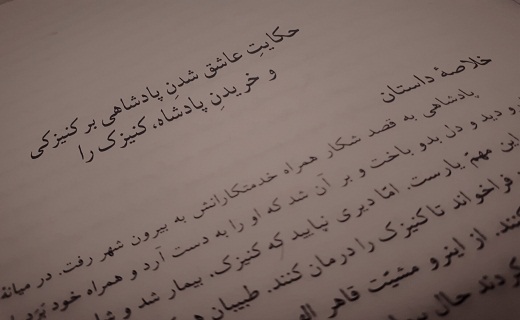 حکایتِ عاشق شدنِ پادشاهی بر کنیزکی
و خریدنِ پادشاه، کنیزک را
خلاصهٔ داستان
پادشاهی به قصد شکار همراه خدمتکارانش به بیرون شهر رفت. در میانهٔ
دید و دل بدو باخت و بر آن شد که او را به دست آرد و همراه خود
این مهم یارست. امّا دیری نپایید که کنیزک، بیمار شد و
فراخواند تا کنیزک را درمان کنند. طبیبان
کنند. از اینرو مشیّت قاهر
کردند حال